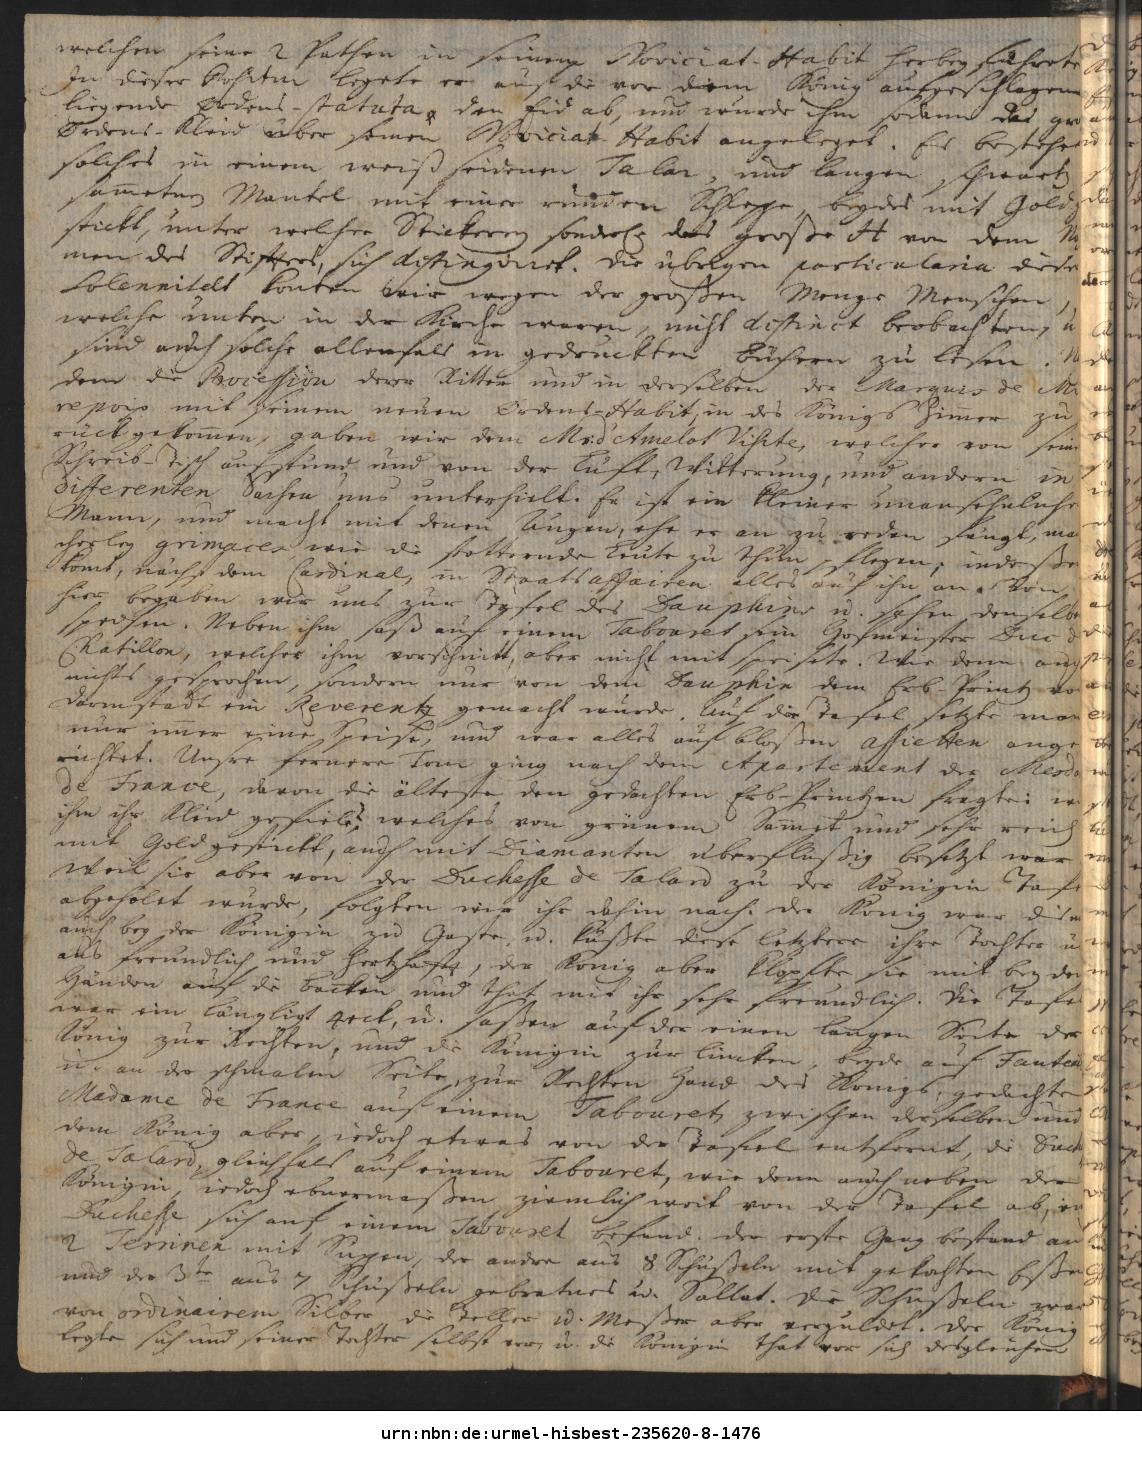 welchen seine 2 Pathen in seinem Noviciat-Habit herbey führete
In dieser Positur legete er auf die vor dem König aufgeschlagene
liegende Ordens-statuta, den Eid ab, und wurde ihm sodann das gro
Ordens-Kleid über seinen Noviciat-Habit angeleget. Es bestehend
solches in einem weiß seidenen Talar, und langen schwartz
sam̅eten Mantel mit einer runden Schleppe, beydes mit Gold
stickt, unter welcher Stickerey sonderl. das große H von dem Na
men des Stifters, sich distinguiret. Die übrigen particularia dieser
Solennitdt konten wir wegen der großen Menge Menschen,
welche unten in der Kirche waren, nicht distinct beobachten, u
sind auch solche allenfals in gedruckten Büchern zu lesen. N
dem die Procession derer Ritter und in derselben der Marquis de Mi
repoix mit seinem neuen Ordens-Habit, in des Königs Zim̅er zu
rück gekom̅en, gaben wir dem Mr: d'Amelot Visite, welcher von sein
Schreib-Tisch aufstund und von der Luft, Witterung, und andern in
differenten Sachen uns unterhielt. Er ist ein kleiner unansehnlicher
Mann, und macht mit denen Augen, ehe er an zu reden fängt, man
cherley grimaces wie die stotternde Leute zu thun pflegen; indeßen
kom̅t, nächst dem Cardinal, in Staats affairen alles auf ihn an. Von
hier begaben wir uns zur Tafel des Dauphins u. sahen denselben
speisen. Neben ihm saß auf einem Tabouret sein Hofmeister Duc d
Chatillon, welcher ihm vorschnitt, aber nicht mit speisete. Wie denn auch
nichts gesprochen, sondern nur von dem Dauphin dem Erb-Printz von
Darmstadt ein Reverentz gemacht wurde. Auf die Tafel setzte man
nur im̅er eine Speise, und war alles auf bloßen assietten ange
richtet. Unsre fernere Tour ging nach dem Apartement der Mesda
de France, davon die älteste den gedachten Erb-Printzen fragte: wi
ihm ihr Kleid gefiele, welches von grünem Sam̅et und sehr reich
mit Gold gestickt, auch mit Diamanten überflüßig besetzt war
Weil sie aber von der Duchesse de Talard zu der Königin Tafe
abgeholet wurde, folgten wir ihr dahin nach. Der König war diesm
auch bey der Königin zu Gaste, u. küßte diese letztere ihre Tochter u
aus freundlich und hertzhaft, der König aber klopfte sie mit beyden
Händen auf die backen und that mit ihr sehr freundlich. Die Tafel
war ein längligt 4eck, u. saßen auf der einen langen Seite der
König zur Rechten, und die Königin zur lincken, beyde auf Fauteui
u. an der schmalen Seite, zur Rechten Hand des Königs, gedachte
Madame de France auf einem Tabouret, zwischen derselben und
dem König aber, iedoch etwas von der Tafel entfernt, die Duch
de Talard, gleichfals auf einem Tabouret, wie denn auch neben der
Königin, iedoch ebnermaßen ziemlich weit von der Tafel ab, ein
Duchesse sich auf einem Tabouret befand. Der erste Gang bestand au
2 Terrinen mit Suppen, der andre aus 8 Schüßeln mit gekochten Eßen
und der 3te aus 7 Schüßeln gebratnes u. Sallat. Die Schüßeln ware
von ordinairem Silber die Teller u. Meßer aber verguldet. Der König
legte sich und seiner Tochter selbst vor, u. die Königin that vor sich desgleichen
urn:nbn:de:urmel-hisbest-235620-8-1476